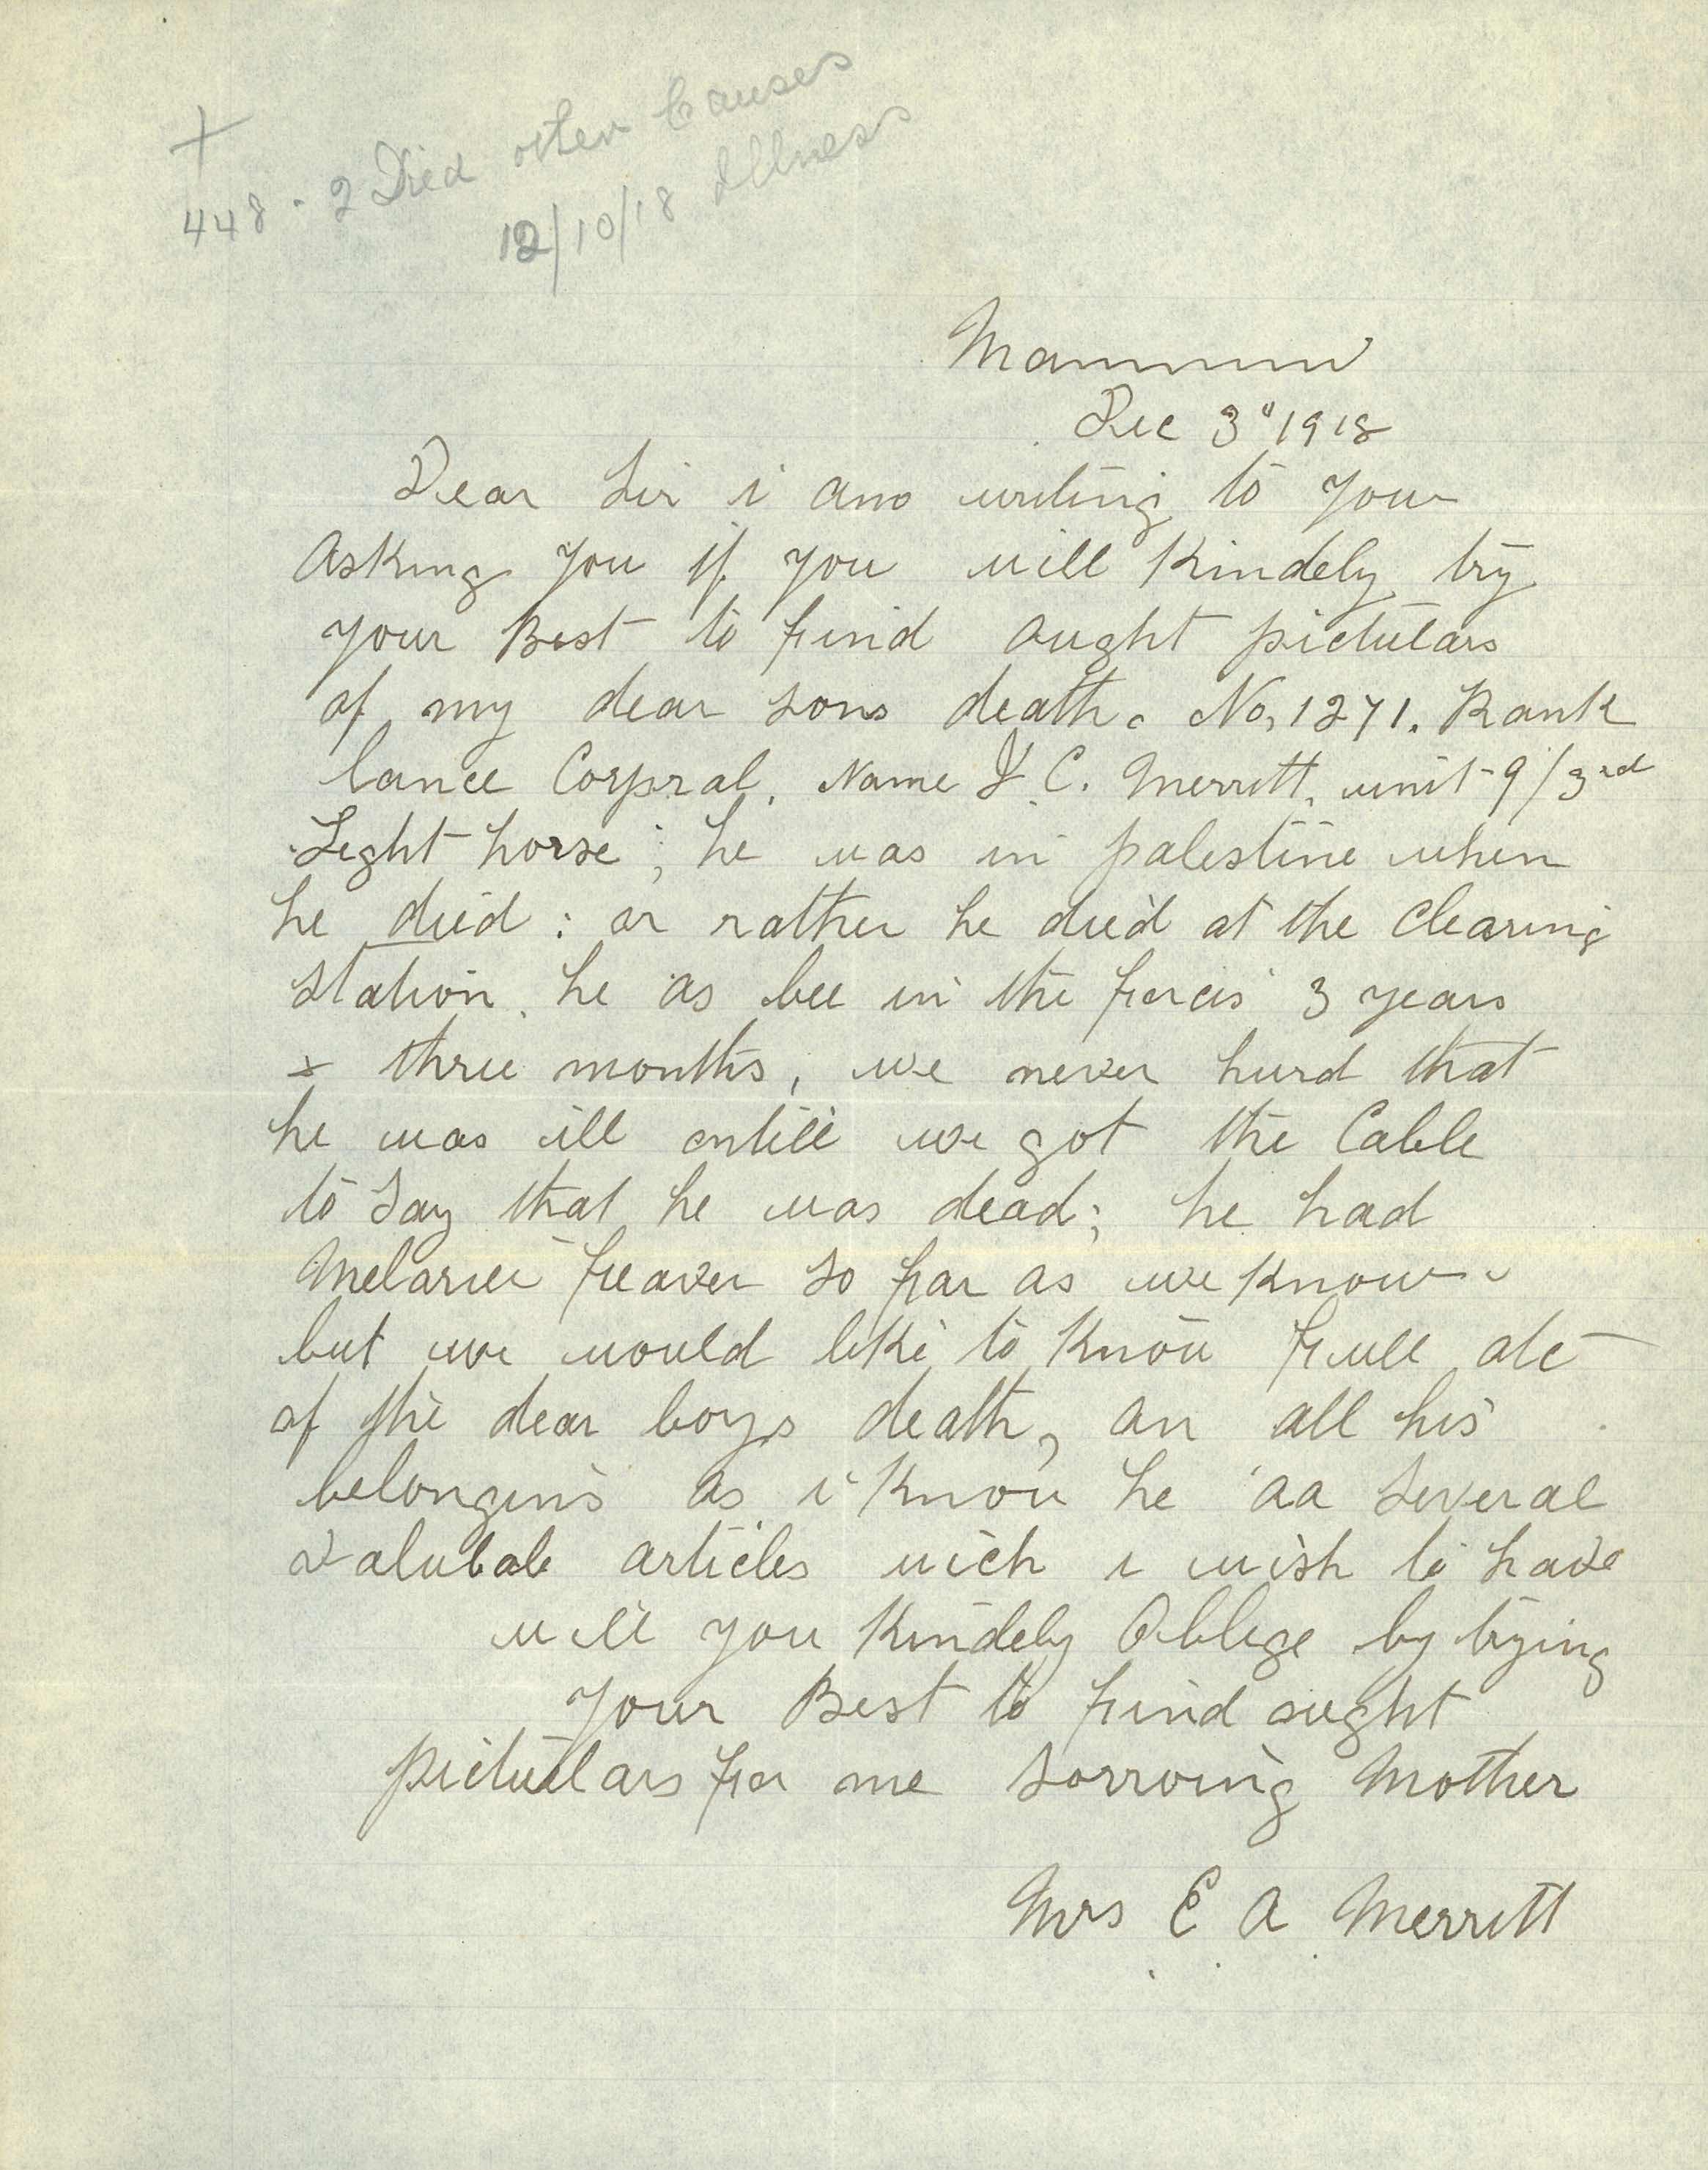 +
448 . 2 Died other Causes
12/10/18 Illness
Mannum
Dec 3" 1918
Dear Sir i am writing to you
Asking you if you will Kindely try
your Best to find ought pictulars
of my dear sons death. No, 1271. Rank
lance Corpral. Name J. C. Merritt, unit 9/3rd
Light horse ; he was in palestine when
he died : or rather he died at the Clearing
station. he as bee in the forcis 3 years
+ three months, we never hurd that
he was ill ontill we got the Cable
to say that he was dead ; he had
Melarier feaver so far as we know
but we would like to know full
of the dear boys death, an all his
belongins as i know he aa several
valubale articles wich i wish to have
will you Kindely Oblige by trying
your Best to find ought
pictutlars for me sorroing Mother
Mrs E A Merritt